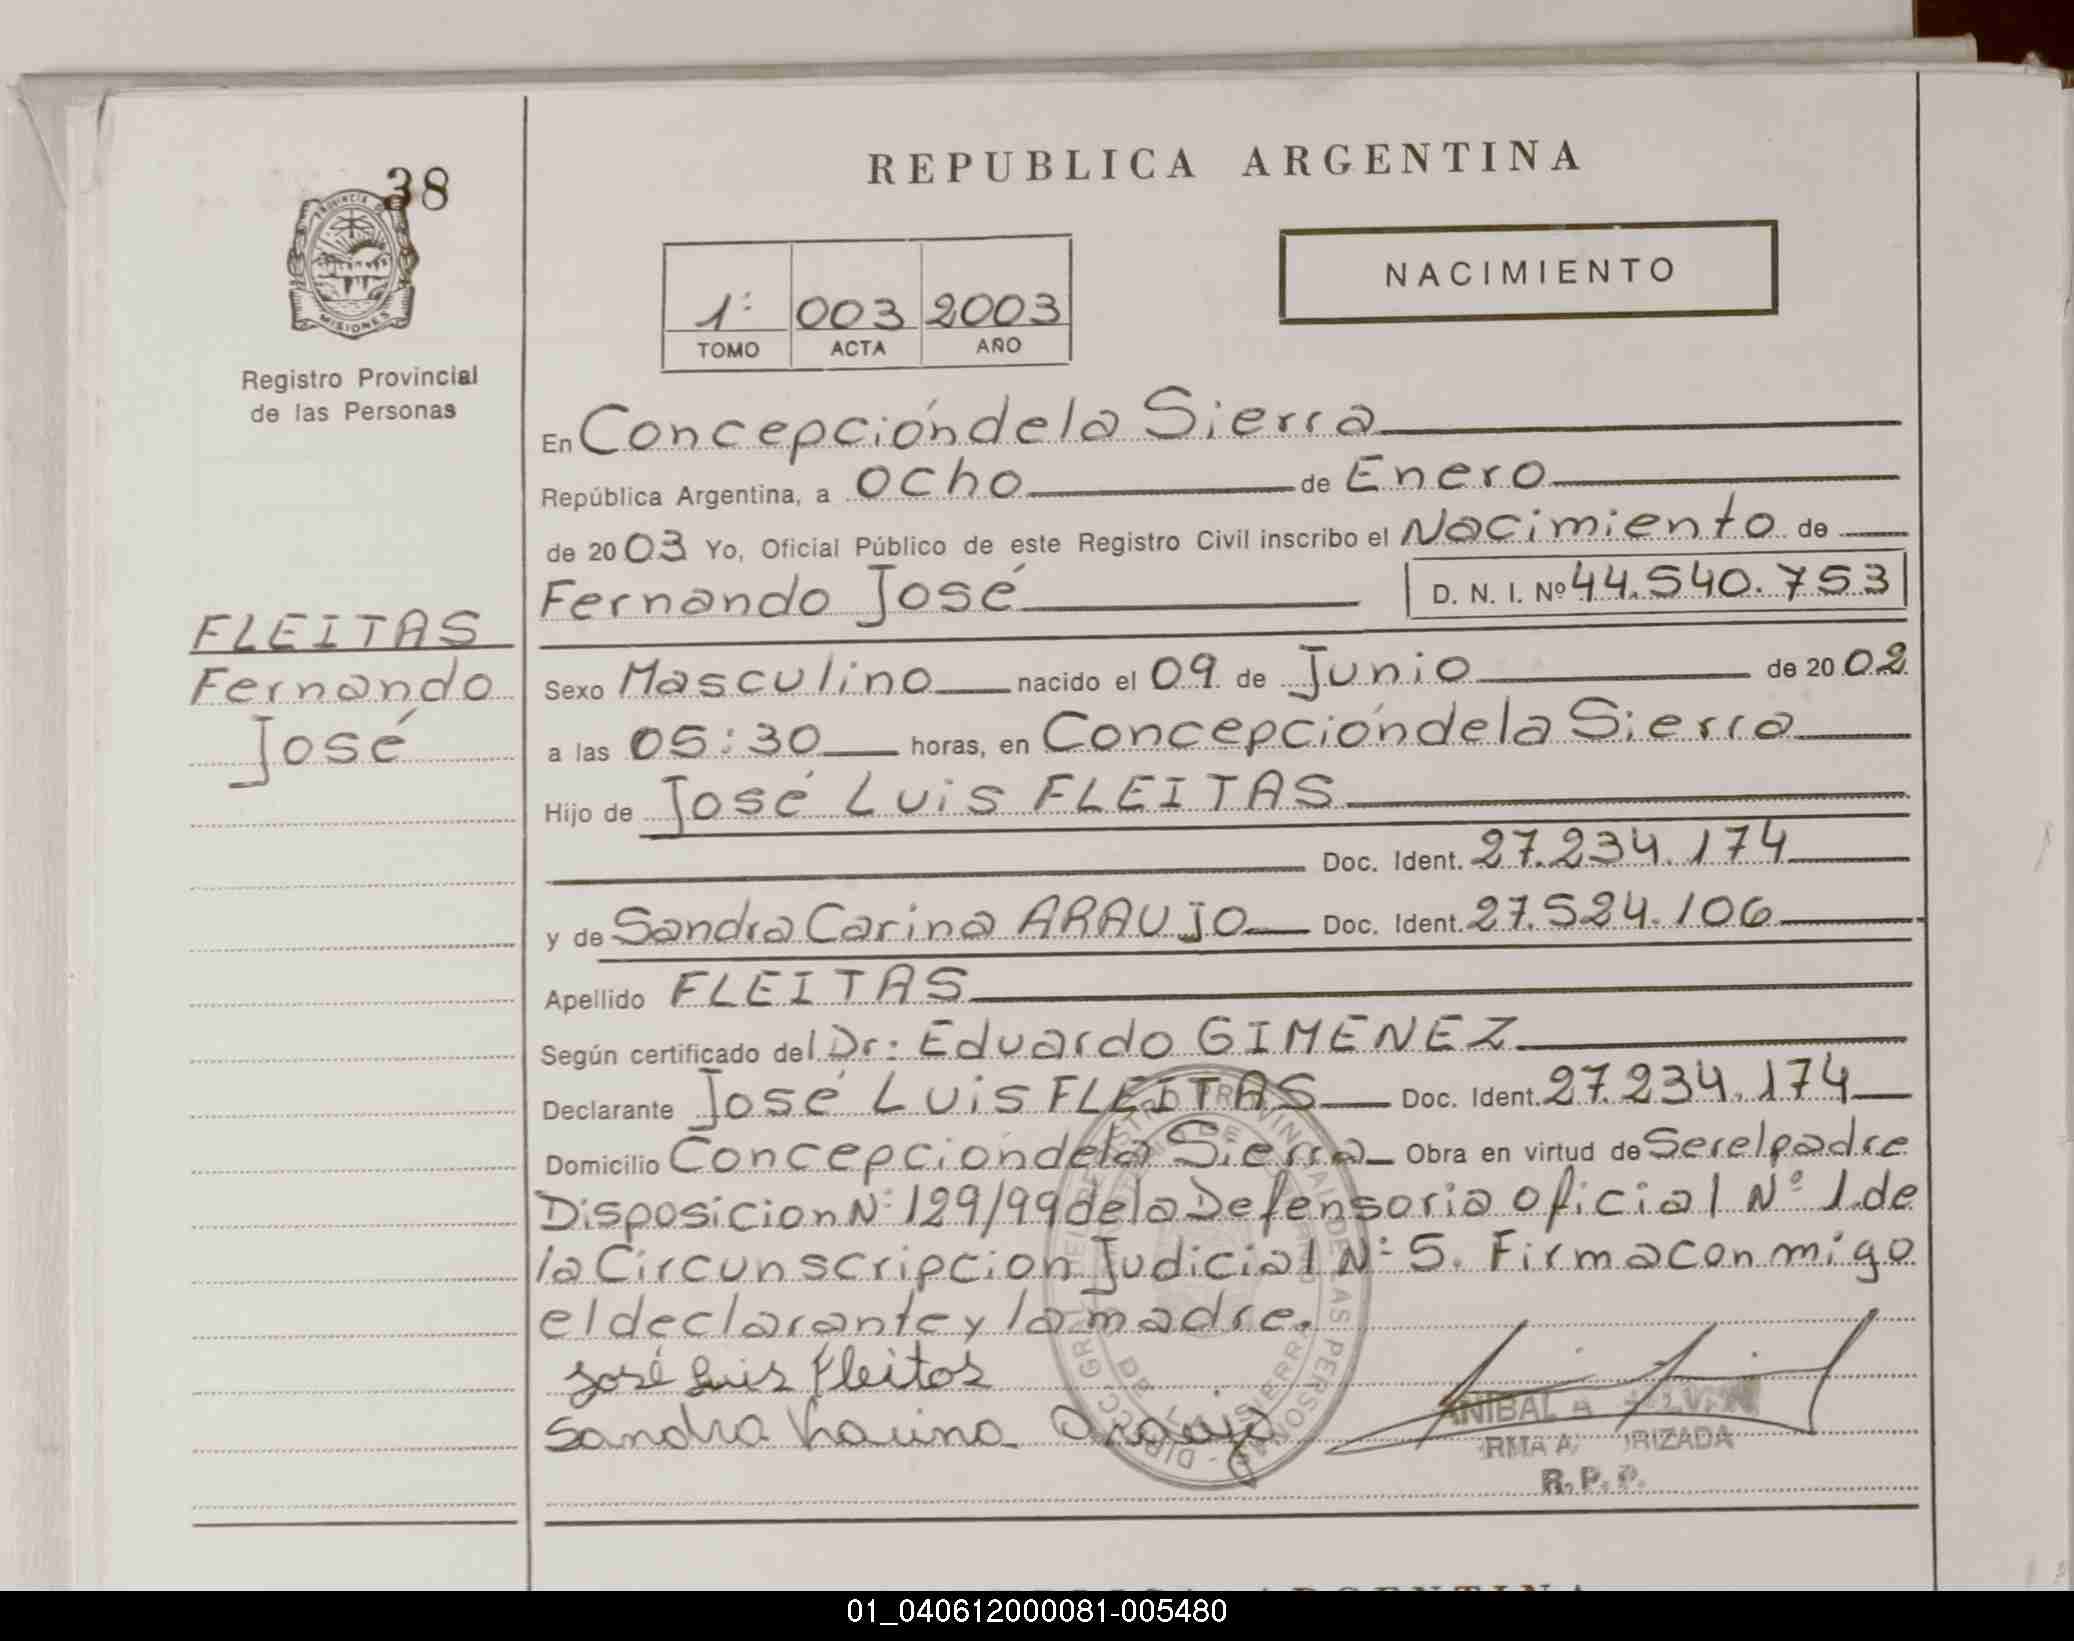 38
PROVINCIA DE
MISIONES
Registro Provincial
de las Personas
FLEITAS
Fernando
José
REPUBLICA ARGENTINA
NACIMIENTO
1º 003 2003
TOMO ACTA AÑO
En Concepción de la Sierra
República Argentina, a ocho de Enero
de 2003 Yo, Oficial Público de este Registro Civil inscribo el Nacimiento de
Fernando José D. N. I. Nº 44.540.753
Sexo Masculino nacido el 09 de Junio de 2002
a las 05:30 horas, en Concepción de la Sierra
Hijo de José Luis FLEITAS
Doc. Ident. 27.234.174
y de Sandra Carina ARAUJO Doc. Ident. 27.524.106
Apellido FLEITAS
Según certificado del Dr: Eduardo GIMENEZ
Declarante José Luis FLEITAS Doc. Ident. 27.234.174
Domicilio Concepción de la Sierra Obra en virtud de Ser el padre
Disposicion Nº 129/99 de la Defensoria oficial Nº 1 de
la Circunscripcion Judicial Nº 5. Firma con migo
el declarante y la madre.
José Luis Fleitas
Sandra Karina Araujo
ANIBAL A
R.P.P.
REPUBLICA ARGENTINA
01_040612000081-005480